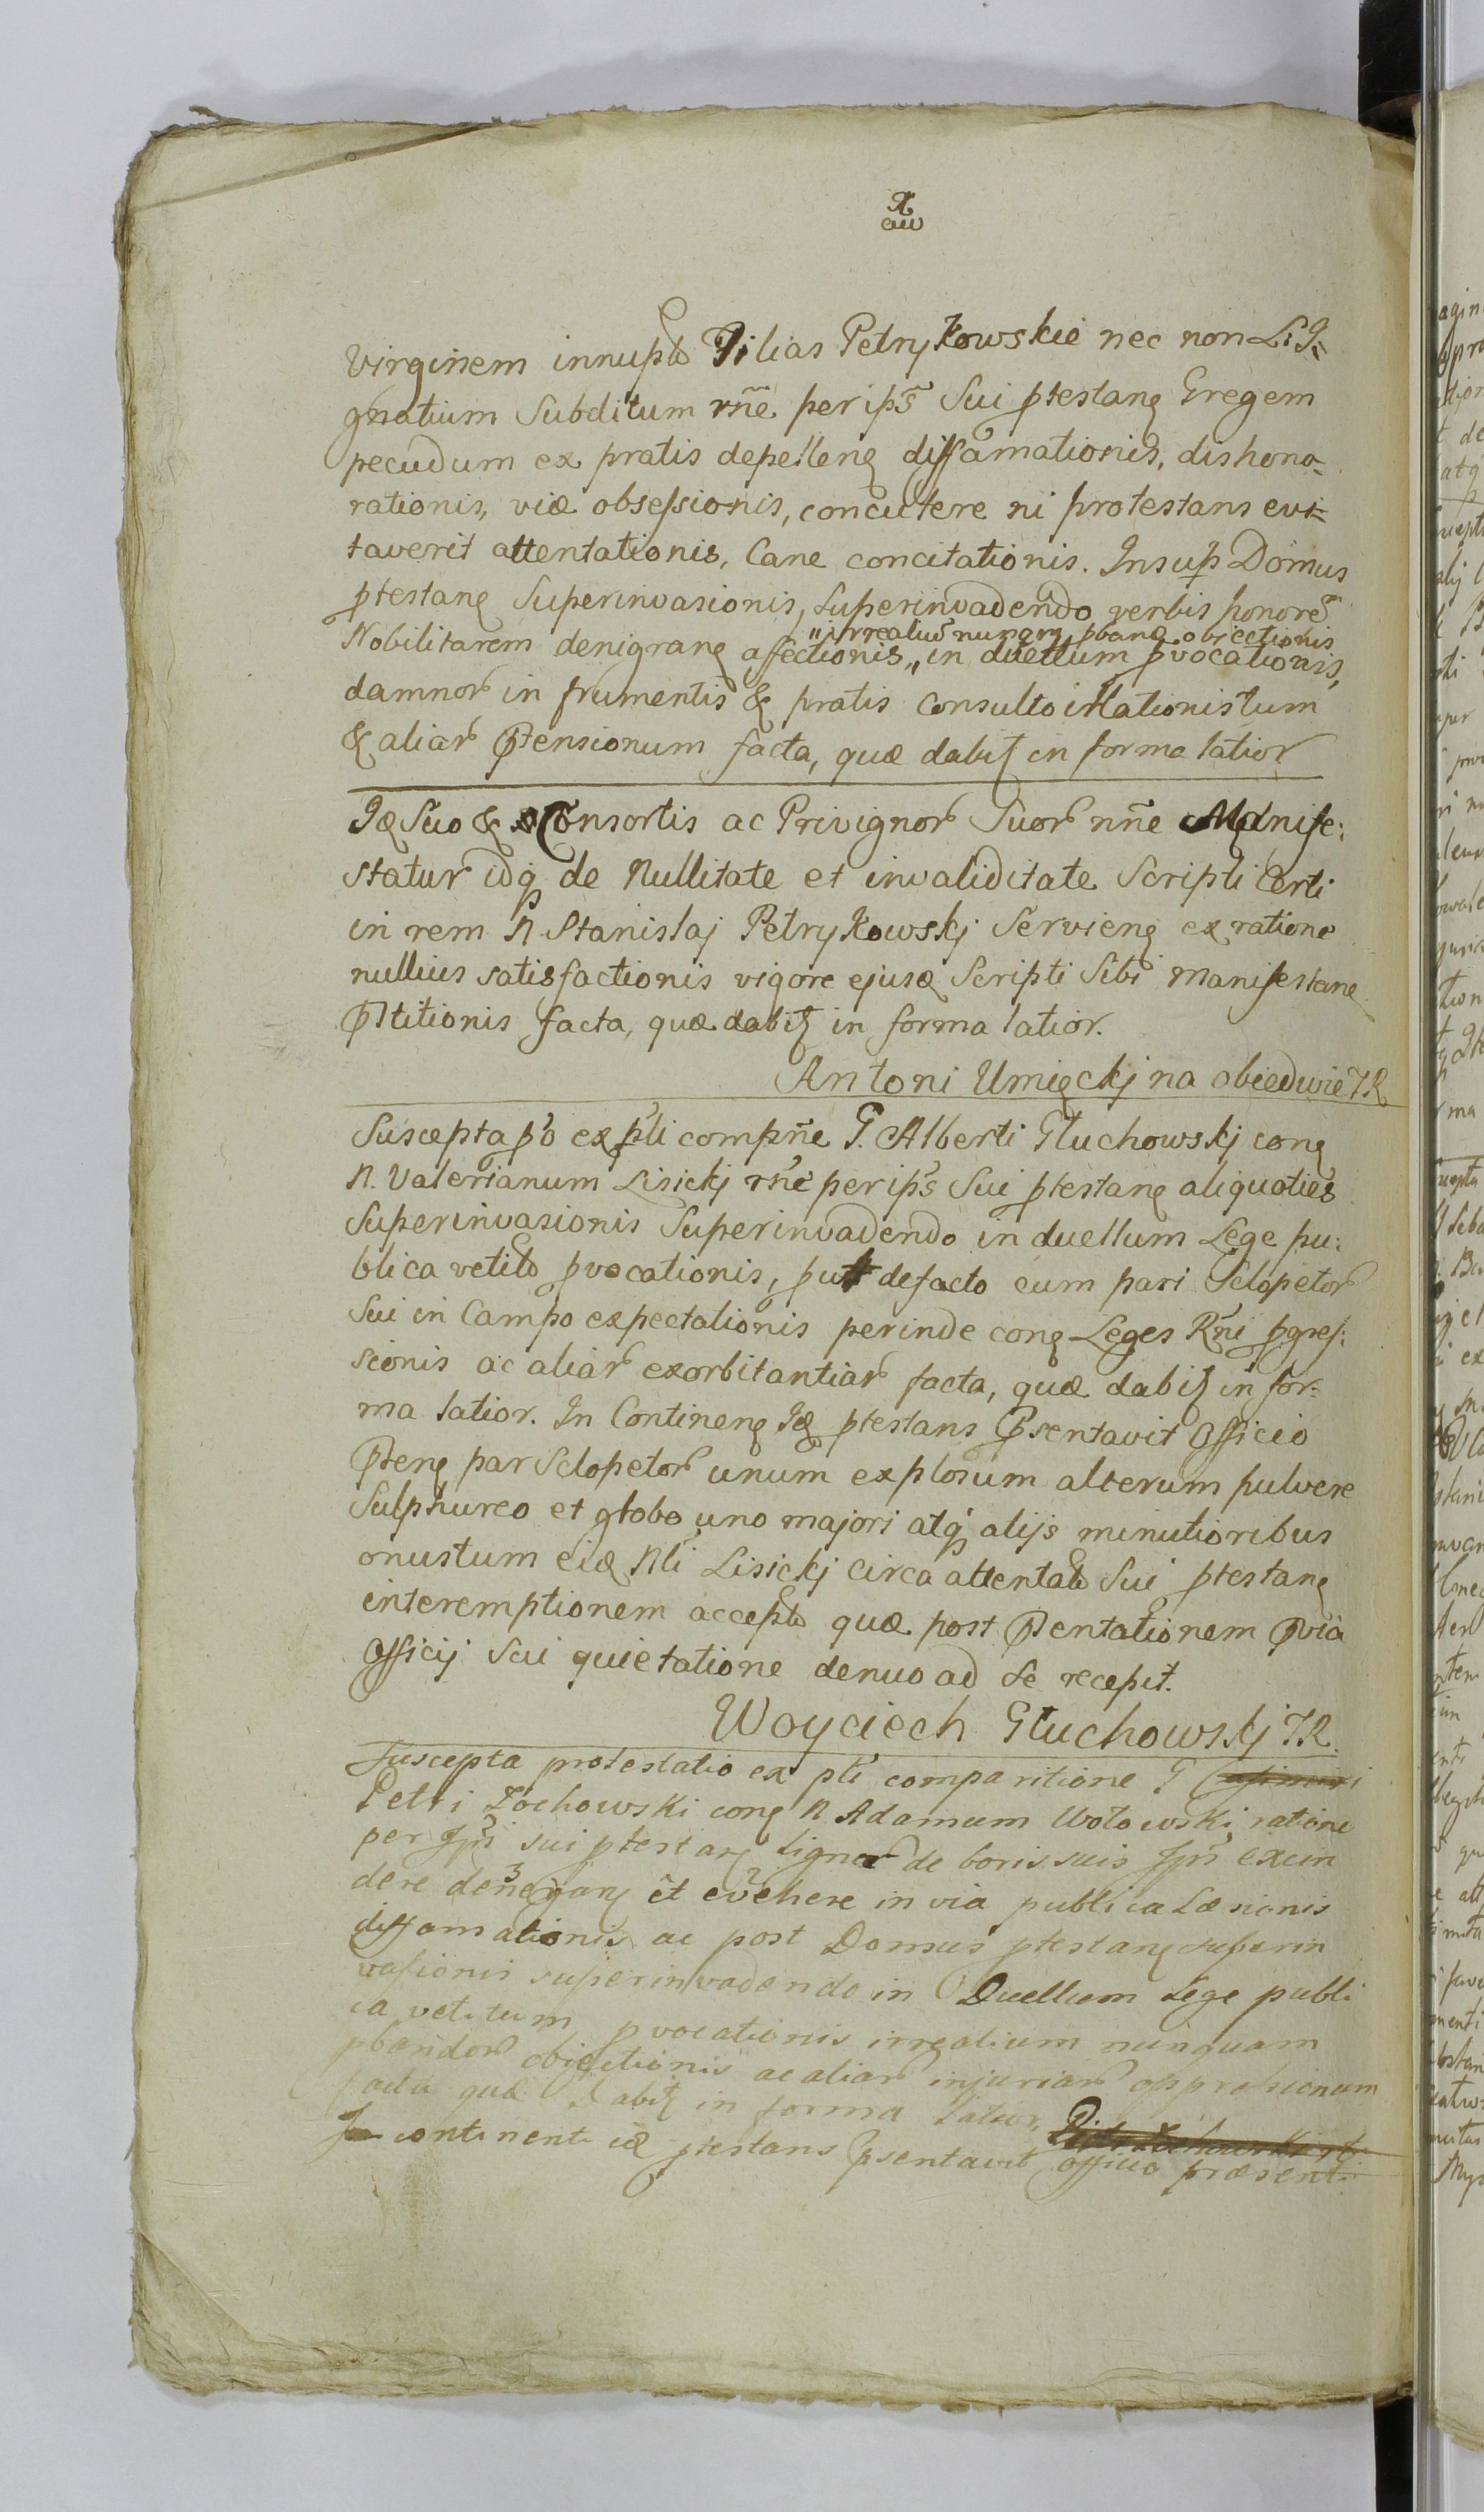 Virginem innupto Filias Petrykowskie nec non L. I=
gnatium Subditum rñe per ips̃ Sui ptestanę Gregem
pecudum ex pratis depellenę diffamationis, dishono=
rationis, viæ obsessionis, concutere ni protestans evi=
taverit attentationis, Cane concitationis. Insup Domus
ptestanę Superinvasionis, Superinvadendo verbis honore
Nobilitarem denigranę afectionis „ in duellum pvocationis,
„irrealiu nunqm pbanę obiectionis
damnor in frumentis & pratis consulto illationis tum
& aliar Ptensionum facta, quæ dabit in forma latior
Ide Suo & Consortis ac Privignor Suor nñe Manife:
statur idq de Nullitate et invaliditate Scripti Certi
in rem N. Stanislaj Petrykowskj Servienę ex ratione
nullius satisfactionis vigore ejusd Scripti Sibi manifestanę
Pstitionis facta, quæ dabit in forma latior.
Antoni Umięckj na obiedwie
Suscepta po ex pli compñe G. Alberti Głuchowskj conę
N. Valerianum Lisickj rñe per ips Sui ptestanę aliquoties
Superinvasionis Superinvadendo in duellum Lege pu:
blica vetito pvocationis, put defacto cum pari Sclopetor
Sui in Campo expectationis perinde conę Leges Rñi pgres:
sionis ac aliar exorbitantiar facta, quæ dabit in for:
ma latior. In Continenę Ide ptestans Psentavit Officio
Ptenę par Sclopetor unum explosum alterum pulvere
Sulphureo et globo uno majori atq alijs minutioribus
onustum eid Nli Lisickj circa attentato Sui ptestanę
interemptionem accepto quæ post Ptentationem Pvia
Officij Sui quietatione denuo ad se recepit.
Woyciech Głuchowskj
Suscepta protestatio ex pli comparitione G
Petri Żochowski conę N Adamum Wołowski ratione
per Ipsi sui ptestanę Lignor de boris suis Ipsi excin
dere denegarę et evehere in via publica Læsionis
diffamationis ac post Domus ptestanę superin
vasionis superinvadendo in Duellum Lege publi
ca vetitum pvocationis irrealium nunquam
pbandor obiectionis ac aliar injuriar oppresionum
facta quæ Dabit in forma latior,
In continenti id ptestans Psentavit officio præsenti